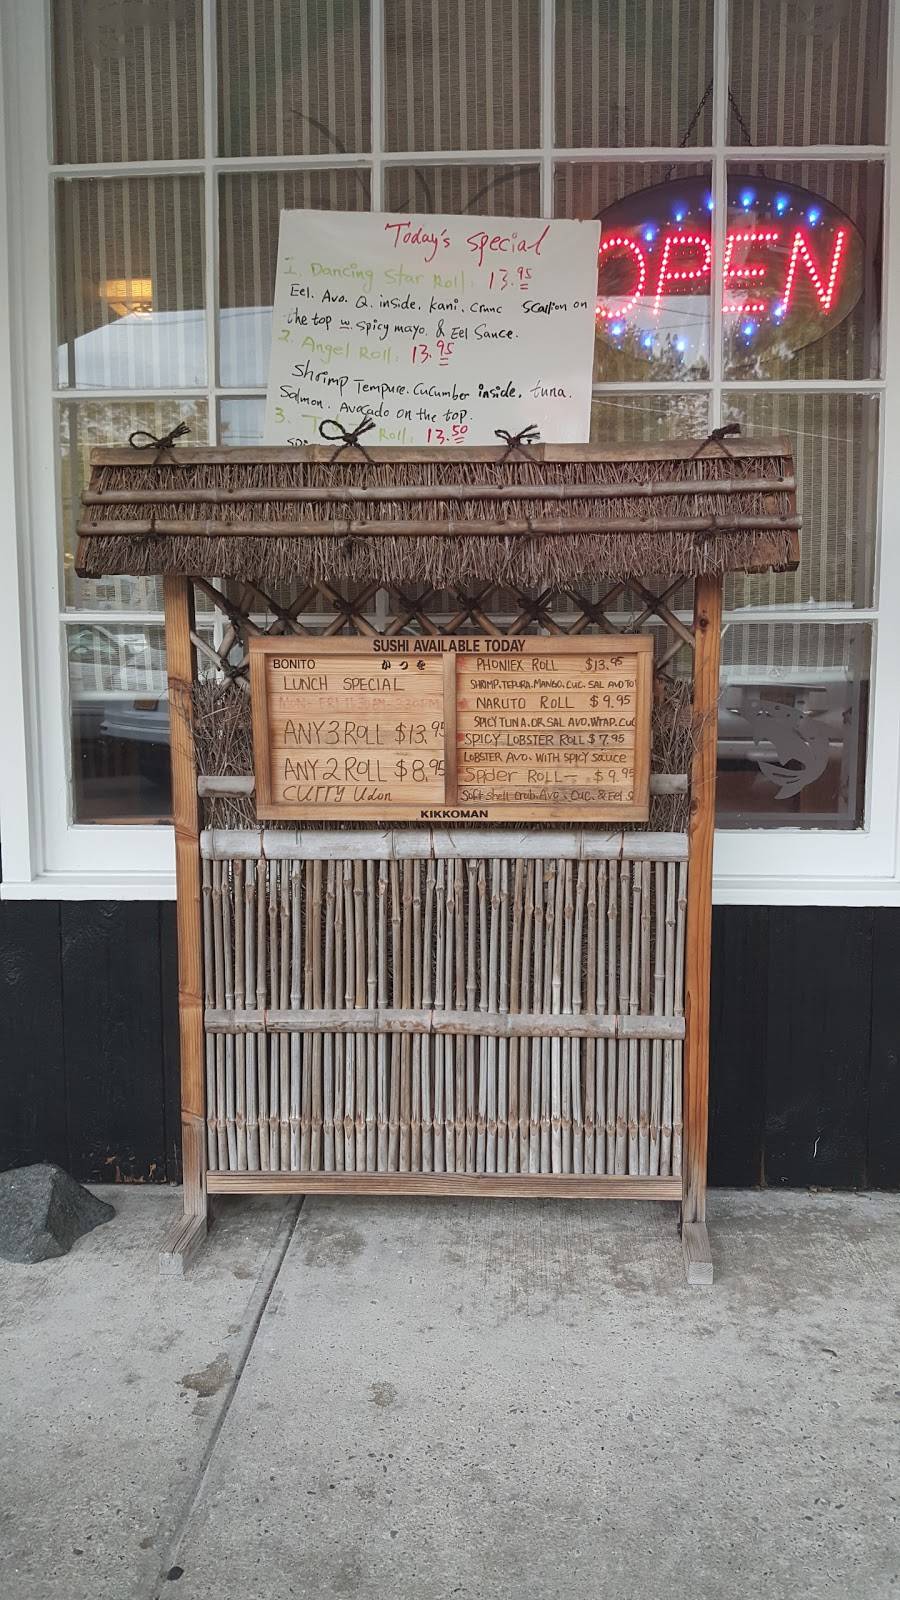 Today's special
1. Dancing Star Roll: 13.95
Eel. Avo. Q. inside. kani. Crunc Scallion on
the top w. spicy mayo. & Eel Sauce.
2. Angel Roll: 13.95
Shrimp Tempure. Cucumber inside. tuna.
Salmon. Avocado on the top.
3. Roll: 13.50
OPEN
SUSHI AVAILABLE TODAY
BONITO かつを
LUNCH SPECIAL
ANY 3 ROLL $13.95
ANY 2 ROLL $8.95
CURRY Udon
PHONIEX ROLL $13.95
SHRIMP.TEPURA.MANGO.CUC.SAL AVO TO
NARUTO ROLL $9.95
SPICY TUNA.OR SAL AVO.WRAP.CUC
SPICY LOBSTER ROLL $7.95
LOBSTER AVO. WITH SPICY SAUCE
Spider ROLL- $9.95
Soft shell crab. Avo. Cuc. & Eel S
KIKKOMAN